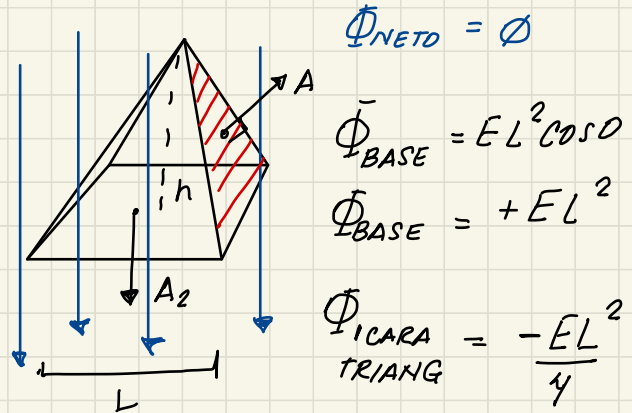 Φ NETO = Ø
A
Φ BASE = EL² COS0
h
Φ BASE = +EL²
A₂
Φ 1 CARA TRIANG = -EL²/4
L